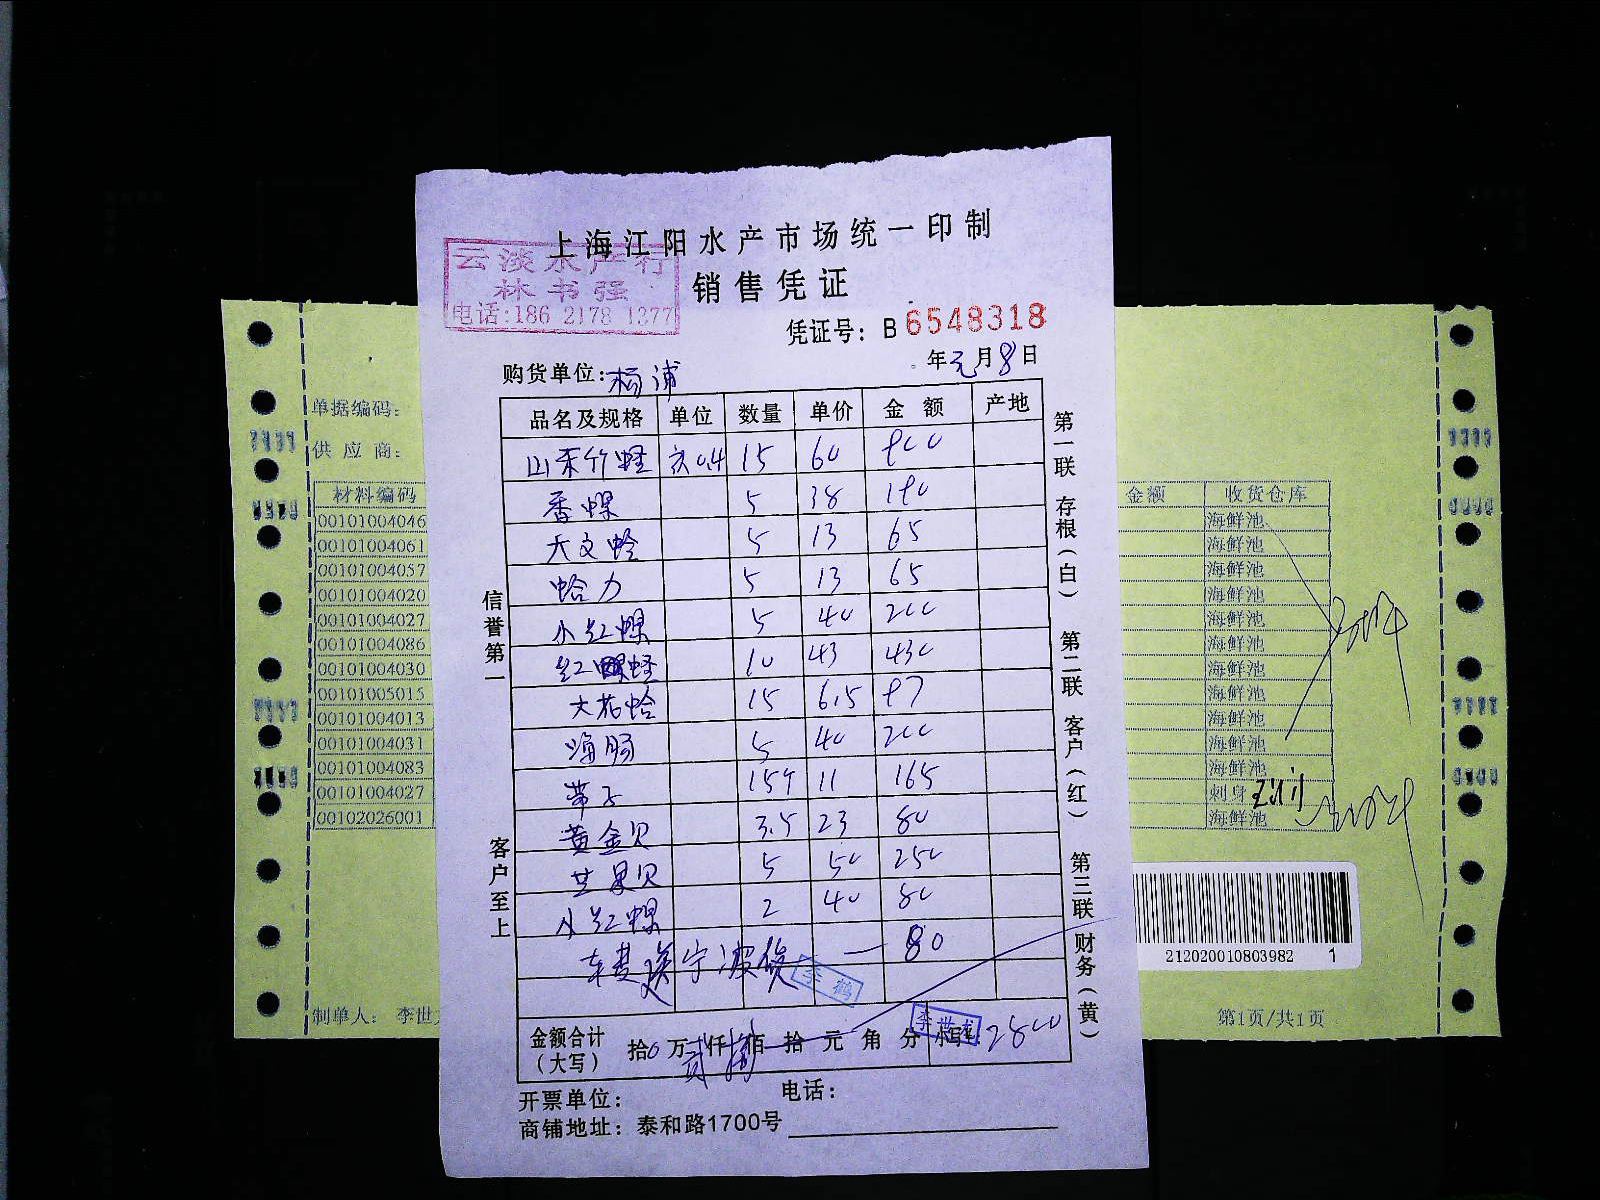 上海江阳水产市场统一印制
云淡水产行
林书强
电话:186 2178 1377
销售凭证
凭证号: B 6548318
购货单位: 杨浦 年元月8日
品名及规格 单位 数量 单价 金额 产地
山东竹蛏 15 60 900
香螺 5 38 190
大文蛤 5 13 65
蛤力 5 13 65
小红螺 5 40 200
红蛏 10 43 430
大花蛤 15 6.5 97
海肠 5 40 200
带子 15 11 165
黄金贝 3.5 23 80
芒果贝 5 50 250
小红螺 2 40 80
车费送宁波货 — 80
李鹤
李世
金额合计(大写) 拾0万贰仟捌佰拾元角分 小写 2800
开票单位: 电话:
商铺地址: 泰和路1700号
信誉第一
客户至上
第一联存根(白)
第二联客户(红)
第三联财务(黄)
单据编码:
供应商:
材料编码 金额 收货仓库
00101004046 海鲜池
00101004061 海鲜池
00101004057 海鲜池
00101004020 海鲜池
00101004027 海鲜池
00101004086 海鲜池
00101004030 海鲜池
00101005015 海鲜池
00101004013 海鲜池
00101004031 海鲜池
00101004083 海鲜池
00101004027 刺身
00102026001 海鲜池
212020010803982 1
制单人: 李世 第1页/共1页